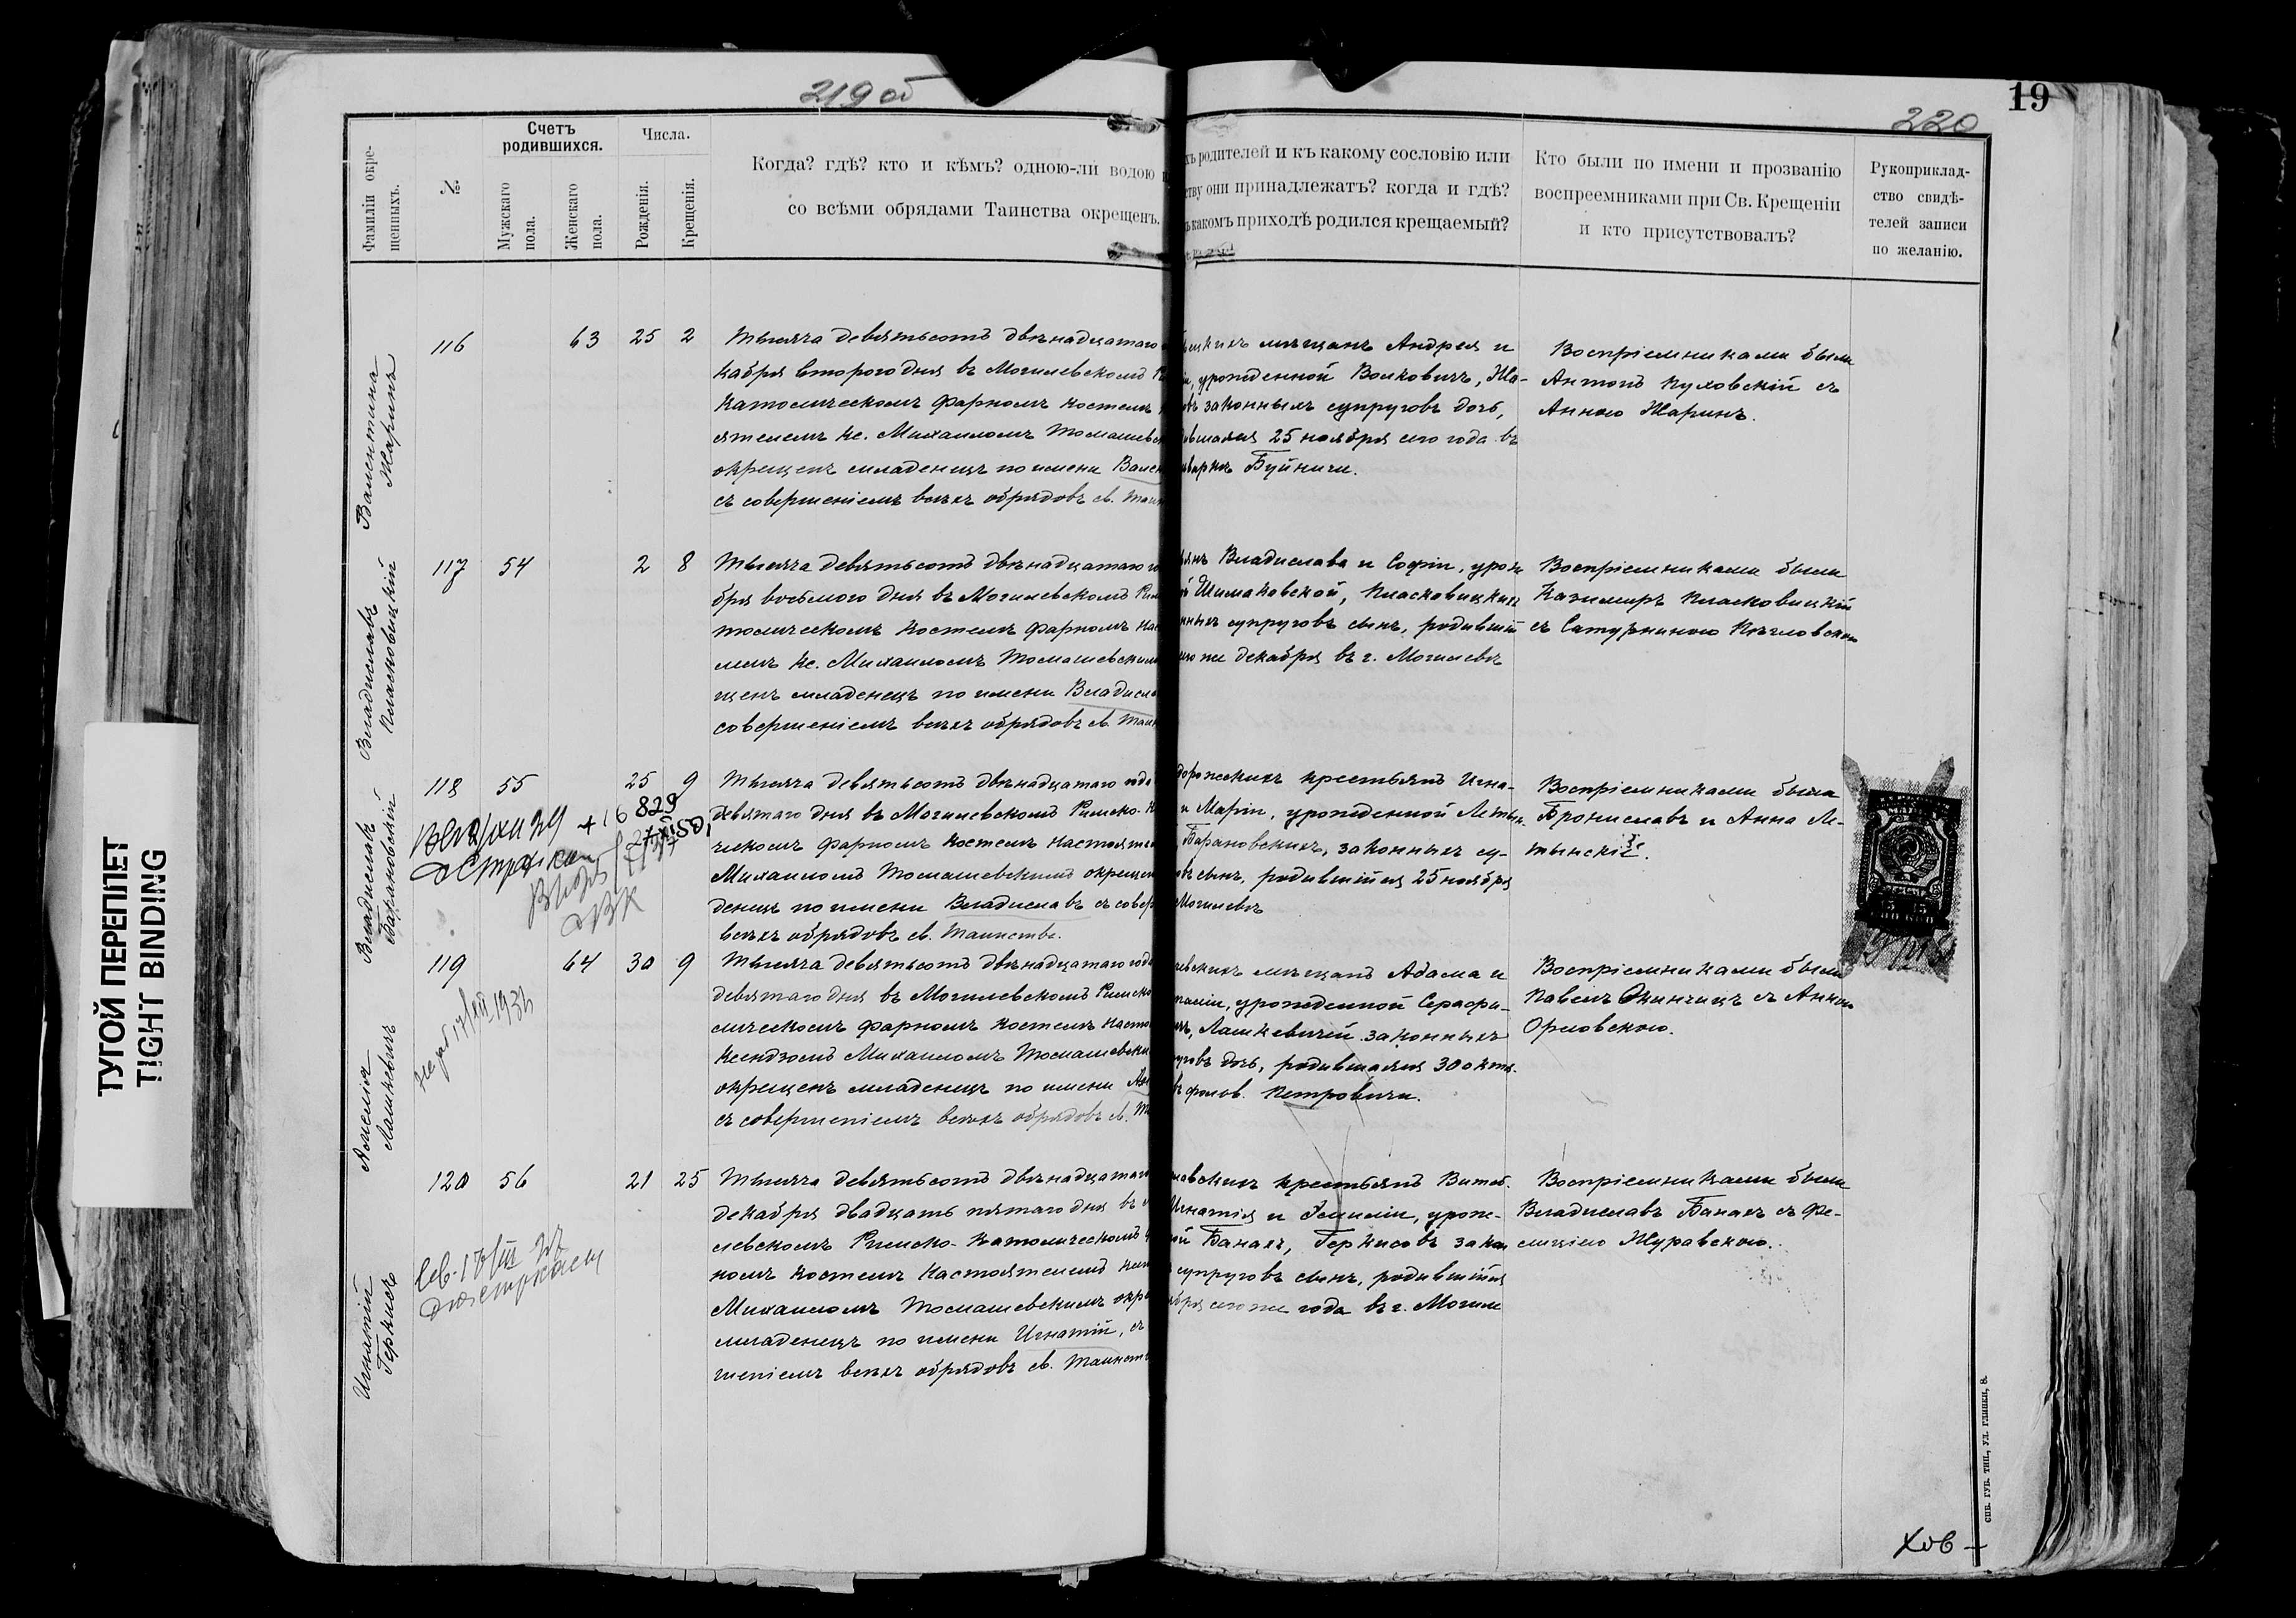 219 об
19
220
Фамиліи окре-
щенныхъ.
№
Счетъ
родившихся.
Мужскаго
пола.
Женскаго
пола.
Числа.
Рожденія.
Крещенія.
Когда? гдѣ? кто и кѣмъ? одною-ли водою и
со всѣми обрядами Таинства окрещенъ.
хъ родителей и къ какому сословію или
ству они принадлежатъ? когда и гдѣ?
ъ какомъ приходѣ родился крещаемый?
Кто были по имени и прозванію
воспреемниками при Св. Крещеніи
и кто присутствовалъ?
Рукоприклад-
ство свидѣ-
телей записи
по желанію.
Валентина
Жаринъ
116
63
25
2
Тысяча девятьсотъ двѣнадцатаго
кабря второго дня въ Могилевскомъ
Католическомъ фарномъ костелѣ
ятелемъ кс. Михаиломъ Томашевск
окрещенъ младенецъ по имени Вален
съ совершеніемъ всѣхъ обрядовъ св. Таин
мѣщанъ Андрея и
урожденной Волковичъ, Жа-
овъ законныхъ супруговъ дочь,
ившаяся 25 ноября сего года въ
Буйничи.
Воспріемниками были
Антонъ Куловскій съ
Анною Жаринъ.
Владиславъ
Плясковицкій
117
54
2
8
Тысяча девятьсотъ двѣнадцатаго го
бря восьмого дня въ Могилевскомъ Рим
толическомъ костелѣ фарномъ нас
лемъ кс. Михаиломъ Томашевским
щенъ младенецъ по имени Владисла
совершеніемъ всѣхъ обрядовъ св. Таин
янъ Владислава и Софіи, урож
Шимановской, Плясковицкихъ
нныхъ супруговъ сынъ, родившій
сего же декабря въ г. Могилевѣ
Воспріемниками были
Казимиръ Плясковицкій
съ Сатурниною
Владиславъ
Барановскій
118
55
25
9
Тысяча девятьсотъ двѣнадцатаго года
девятаго дня въ Могилевскомъ Римско-К
ческомъ фарномъ костелѣ настояте
Михаиломъ Томашевскимъ окрещен
денецъ по имени Владиславъ съ совер
всѣхъ обрядовъ св. Таинства.
дорожскихъ крестьянъ Игна-
и Маріи, урожденной Летын-
Барановскихъ, законныхъ су-
овъ сынъ, родившійся 25 ноября
Могилевѣ
Воспріемниками были
Брониславъ и Анна Ле-
тынскіе.
Амелія
Лашкевичъ
119
64
30
9
Тысяча девятьсотъ двѣнадцатаго года
девятаго дня въ Могилевскомъ Римско
лическомъ фарномъ костелѣ насто
ксендзомъ Михаиломъ Томашевски
окрещенъ младенецъ по имени Ам
съ совершеніемъ всѣхъ обрядовъ св. Т
евскихъ мѣщанъ Адама и
урожденной Серафи-
Лашкевичей законныхъ
уговъ дочь, родившаяся 30 октя-
фольв. Петровичи.
Воспріемниками были
Павелъ Окинчицъ съ Анною
Орловскою.
Игнатій
Геркисъ
120
56
21
25
Тысяча девятьсотъ двѣнадцатаго
декабря двадцать пятаго дня въ
левскомъ Римско-Католическомъ ф
номъ костелѣ настоятелемъ ксен
Михаиломъ Томашевскимъ окре
младенецъ по имени Игнатій, съ
шеніемъ всѣхъ обрядовъ св. Таинст
крестьянъ Витеб.
Игнатія и Эмиліи, урож-
ой Банахъ, Геркисовъ закон
супруговъ сынъ, родившійся
бря сего же года въ г. Могиле
Воспріемниками были
Владиславъ Банахъ съ Фе-
лиціею Журавскою.
ТУГОЙ ПЕРЕПЛЕТ
TIGHT BINDING
СПБ. ГУБ. ТИП., УЛ. ГЛИНКИ, 8.